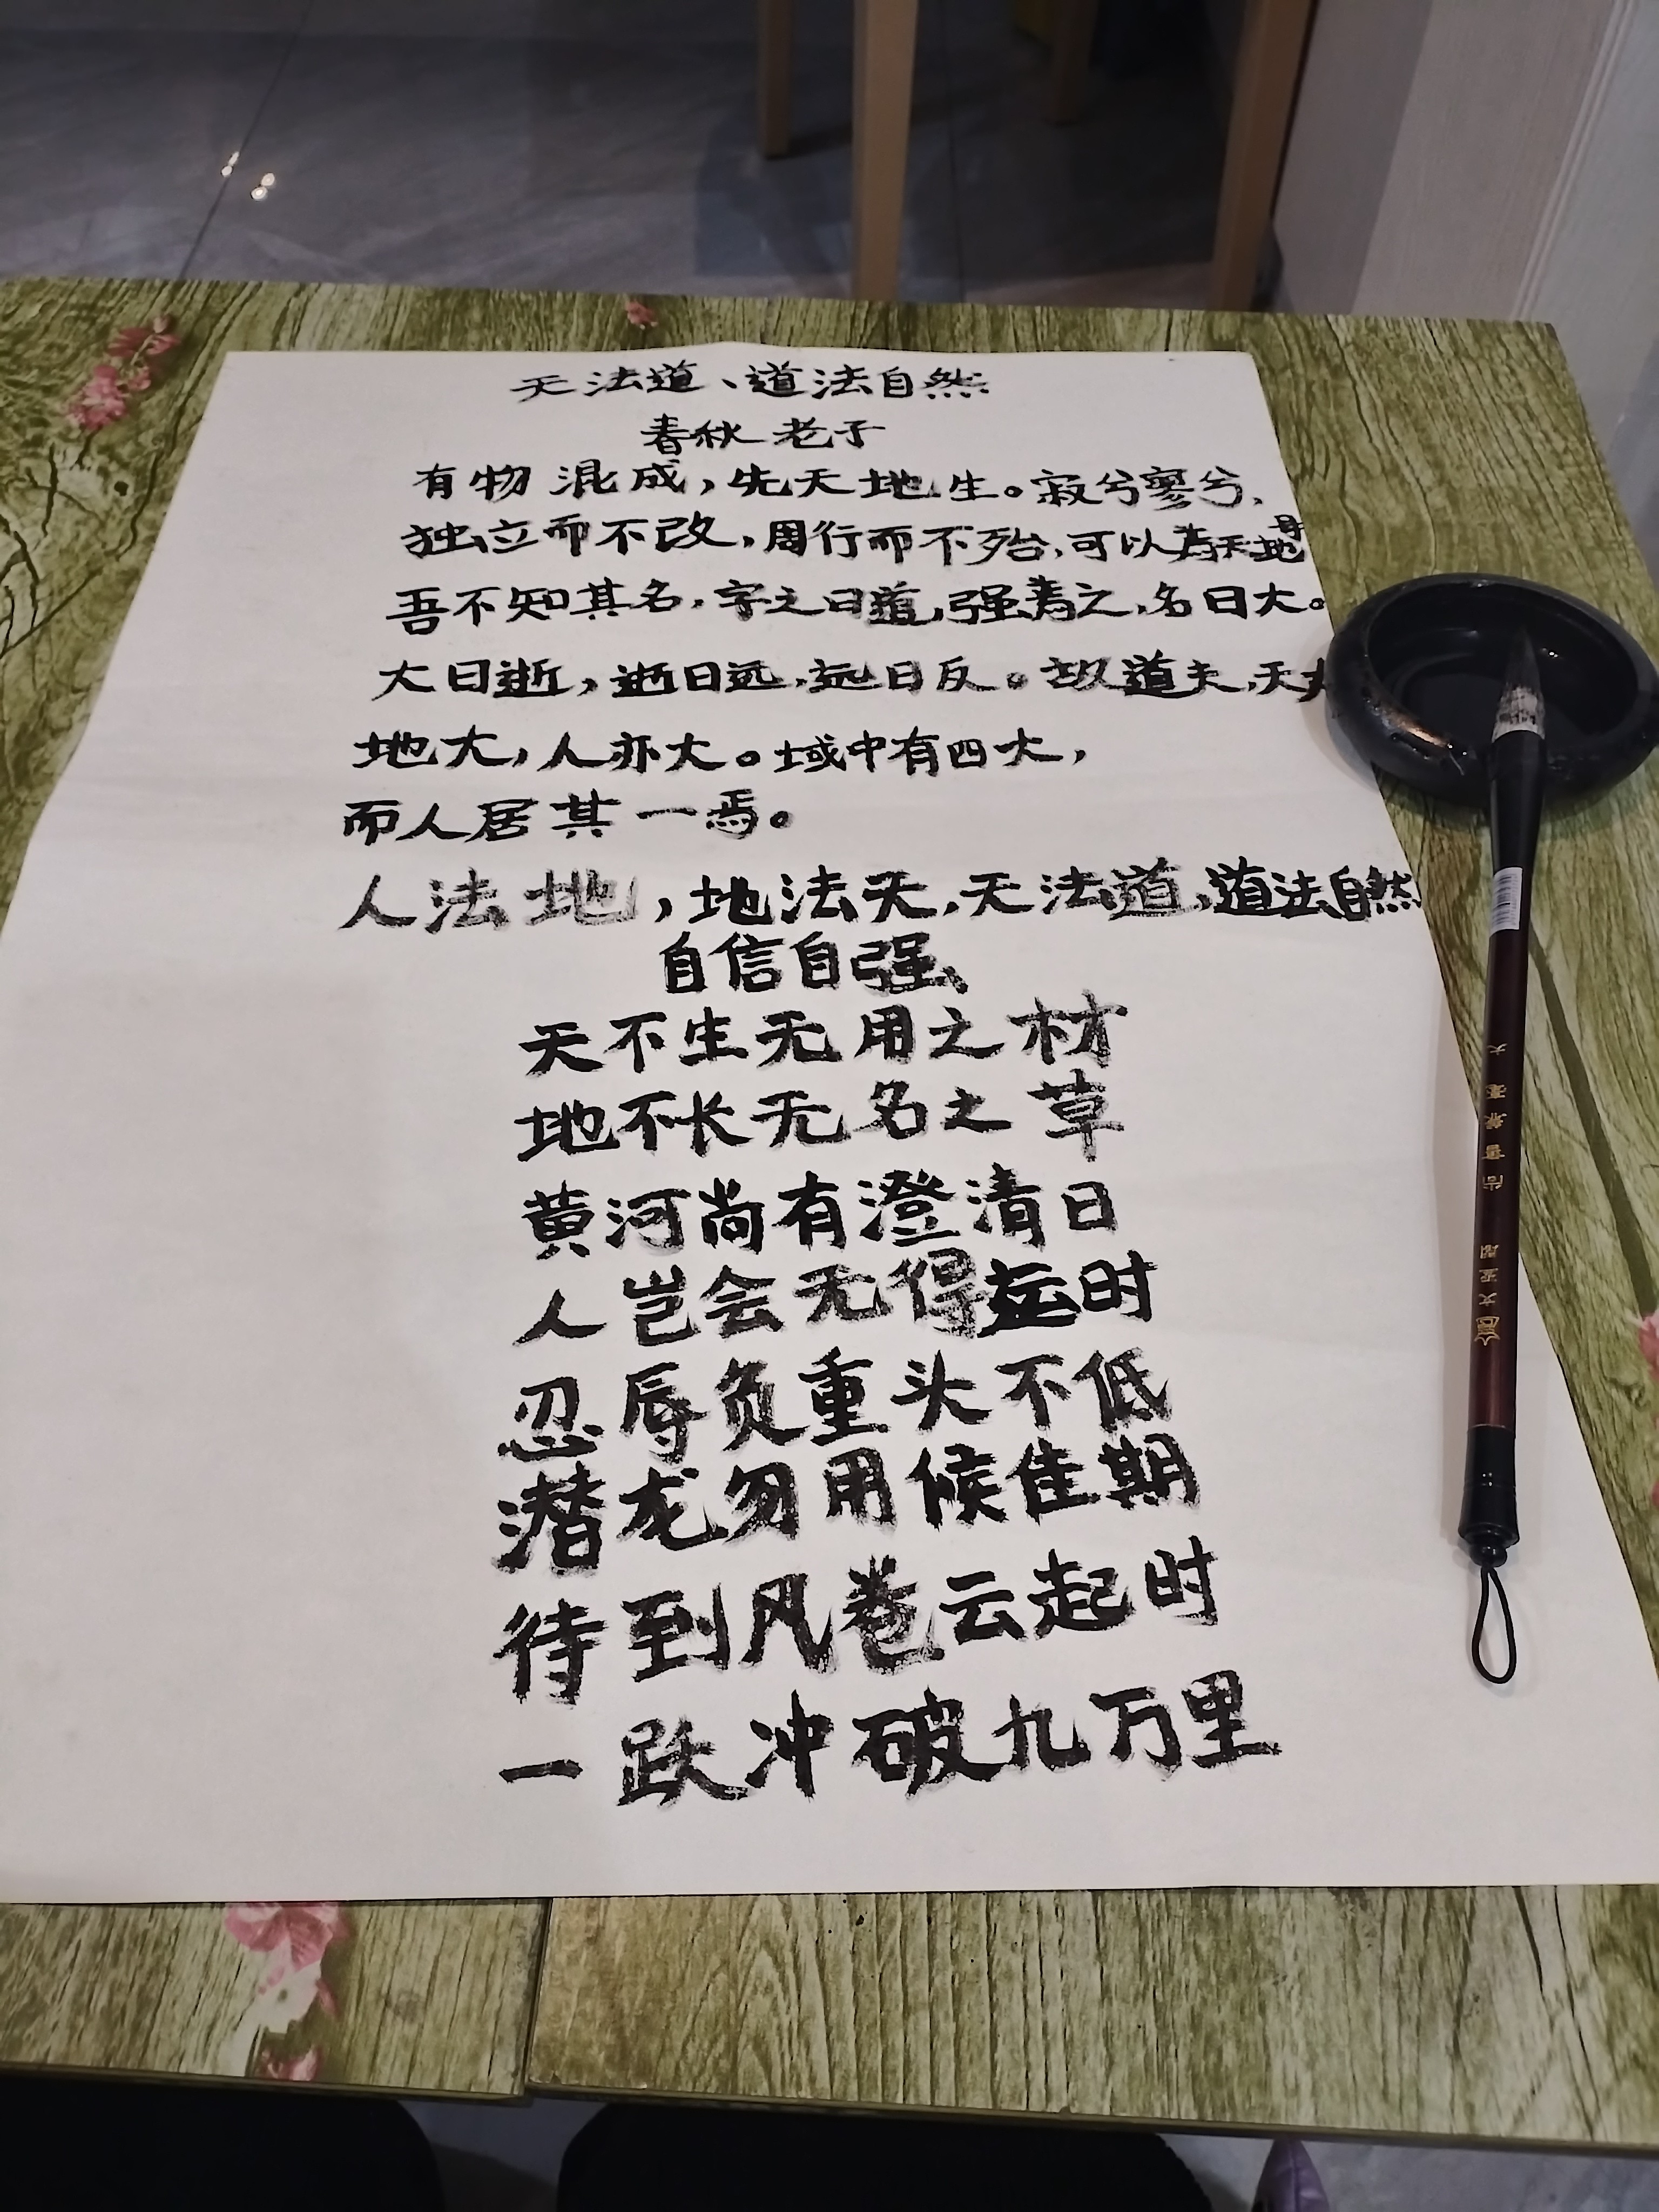 天法道、道法自然
春秋 老子
有物混成，先天地生。寂兮寥兮，
独立而不改，周行而不殆，可以为天地母
吾不知其名，字之曰道，强为之，名曰大。
大曰逝，逝曰远，远曰反。故道大，天大
地大，人亦大。域中有四大，
而人居其一焉。
人法地，地法天，天法道，道法自然
自信自强、
天不生无用之材
地不长无名之草
黄河尚有澄清日
人岂会无得运时
忍辱负重头不低
潜龙勿用候佳期
待到风卷云起时
一跃冲破九万里